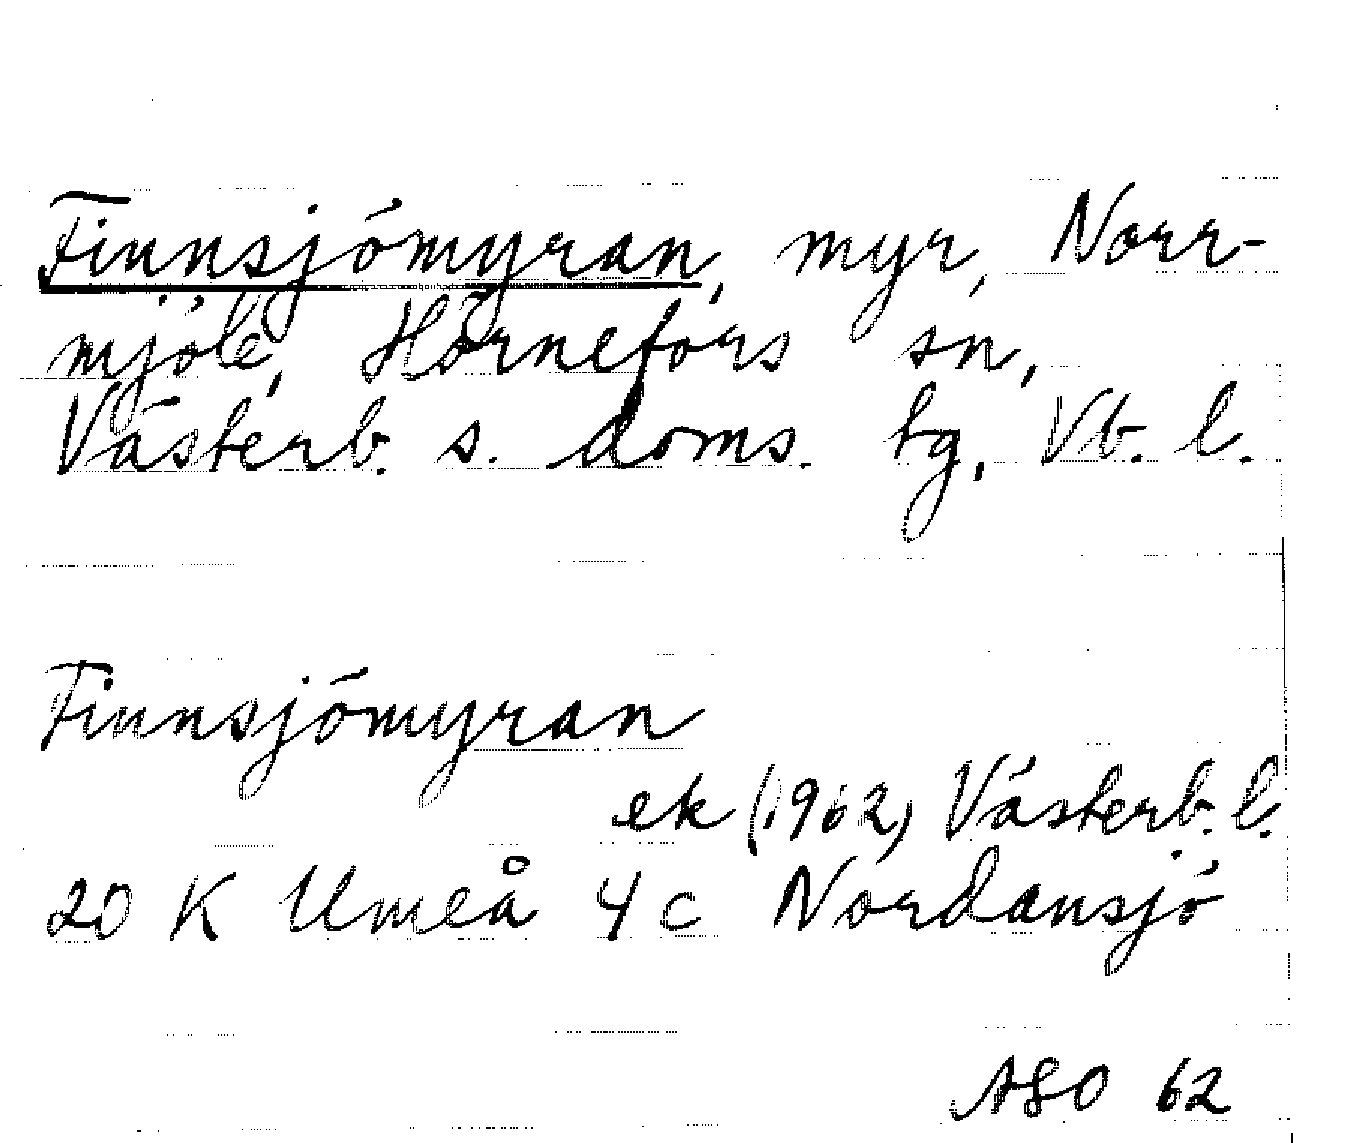 Finnsjömyran, myr, Norr-
mjöle, Hörnefors sn,
Västerb. s. doms. tg, Vb. l.
Finnsjömyran
ek (1962) Västerb. l.
20 K Umeå 4 c Nordansjö
ASO 62